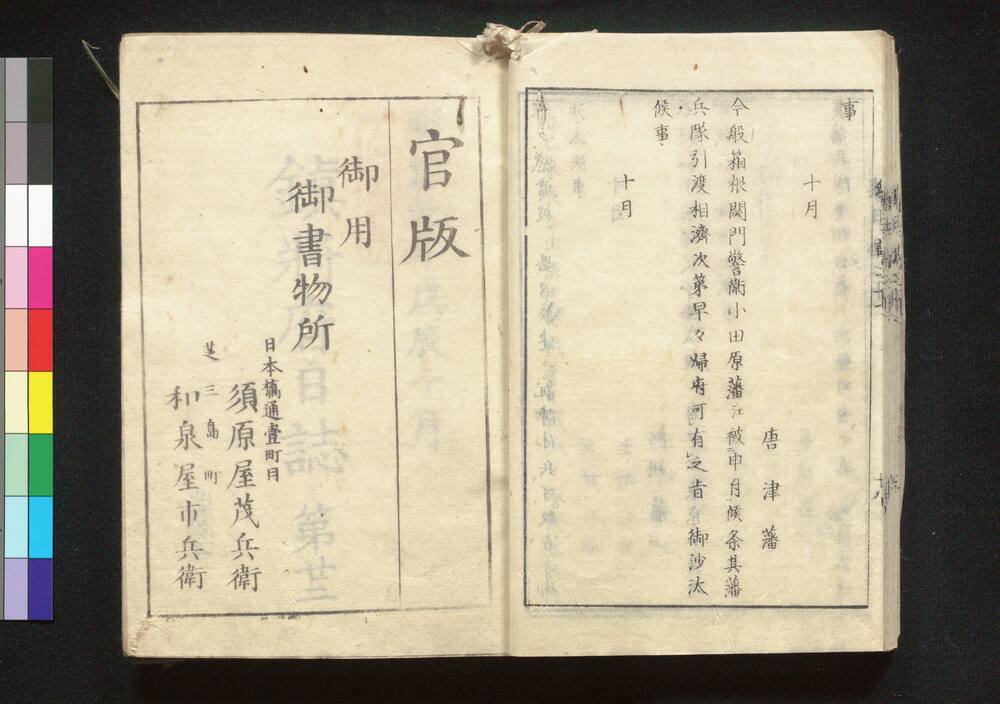 事
十月
唐津藩
今般箱根関門警衛小田原藩江被申付候条其藩
兵隊引渡相済次第早々帰府可有之旨御沙汰
候事
十月
官版
御用
御書物所
日本橋通壹町目
須原屋茂兵衛
芝三島町
和泉屋市兵衛